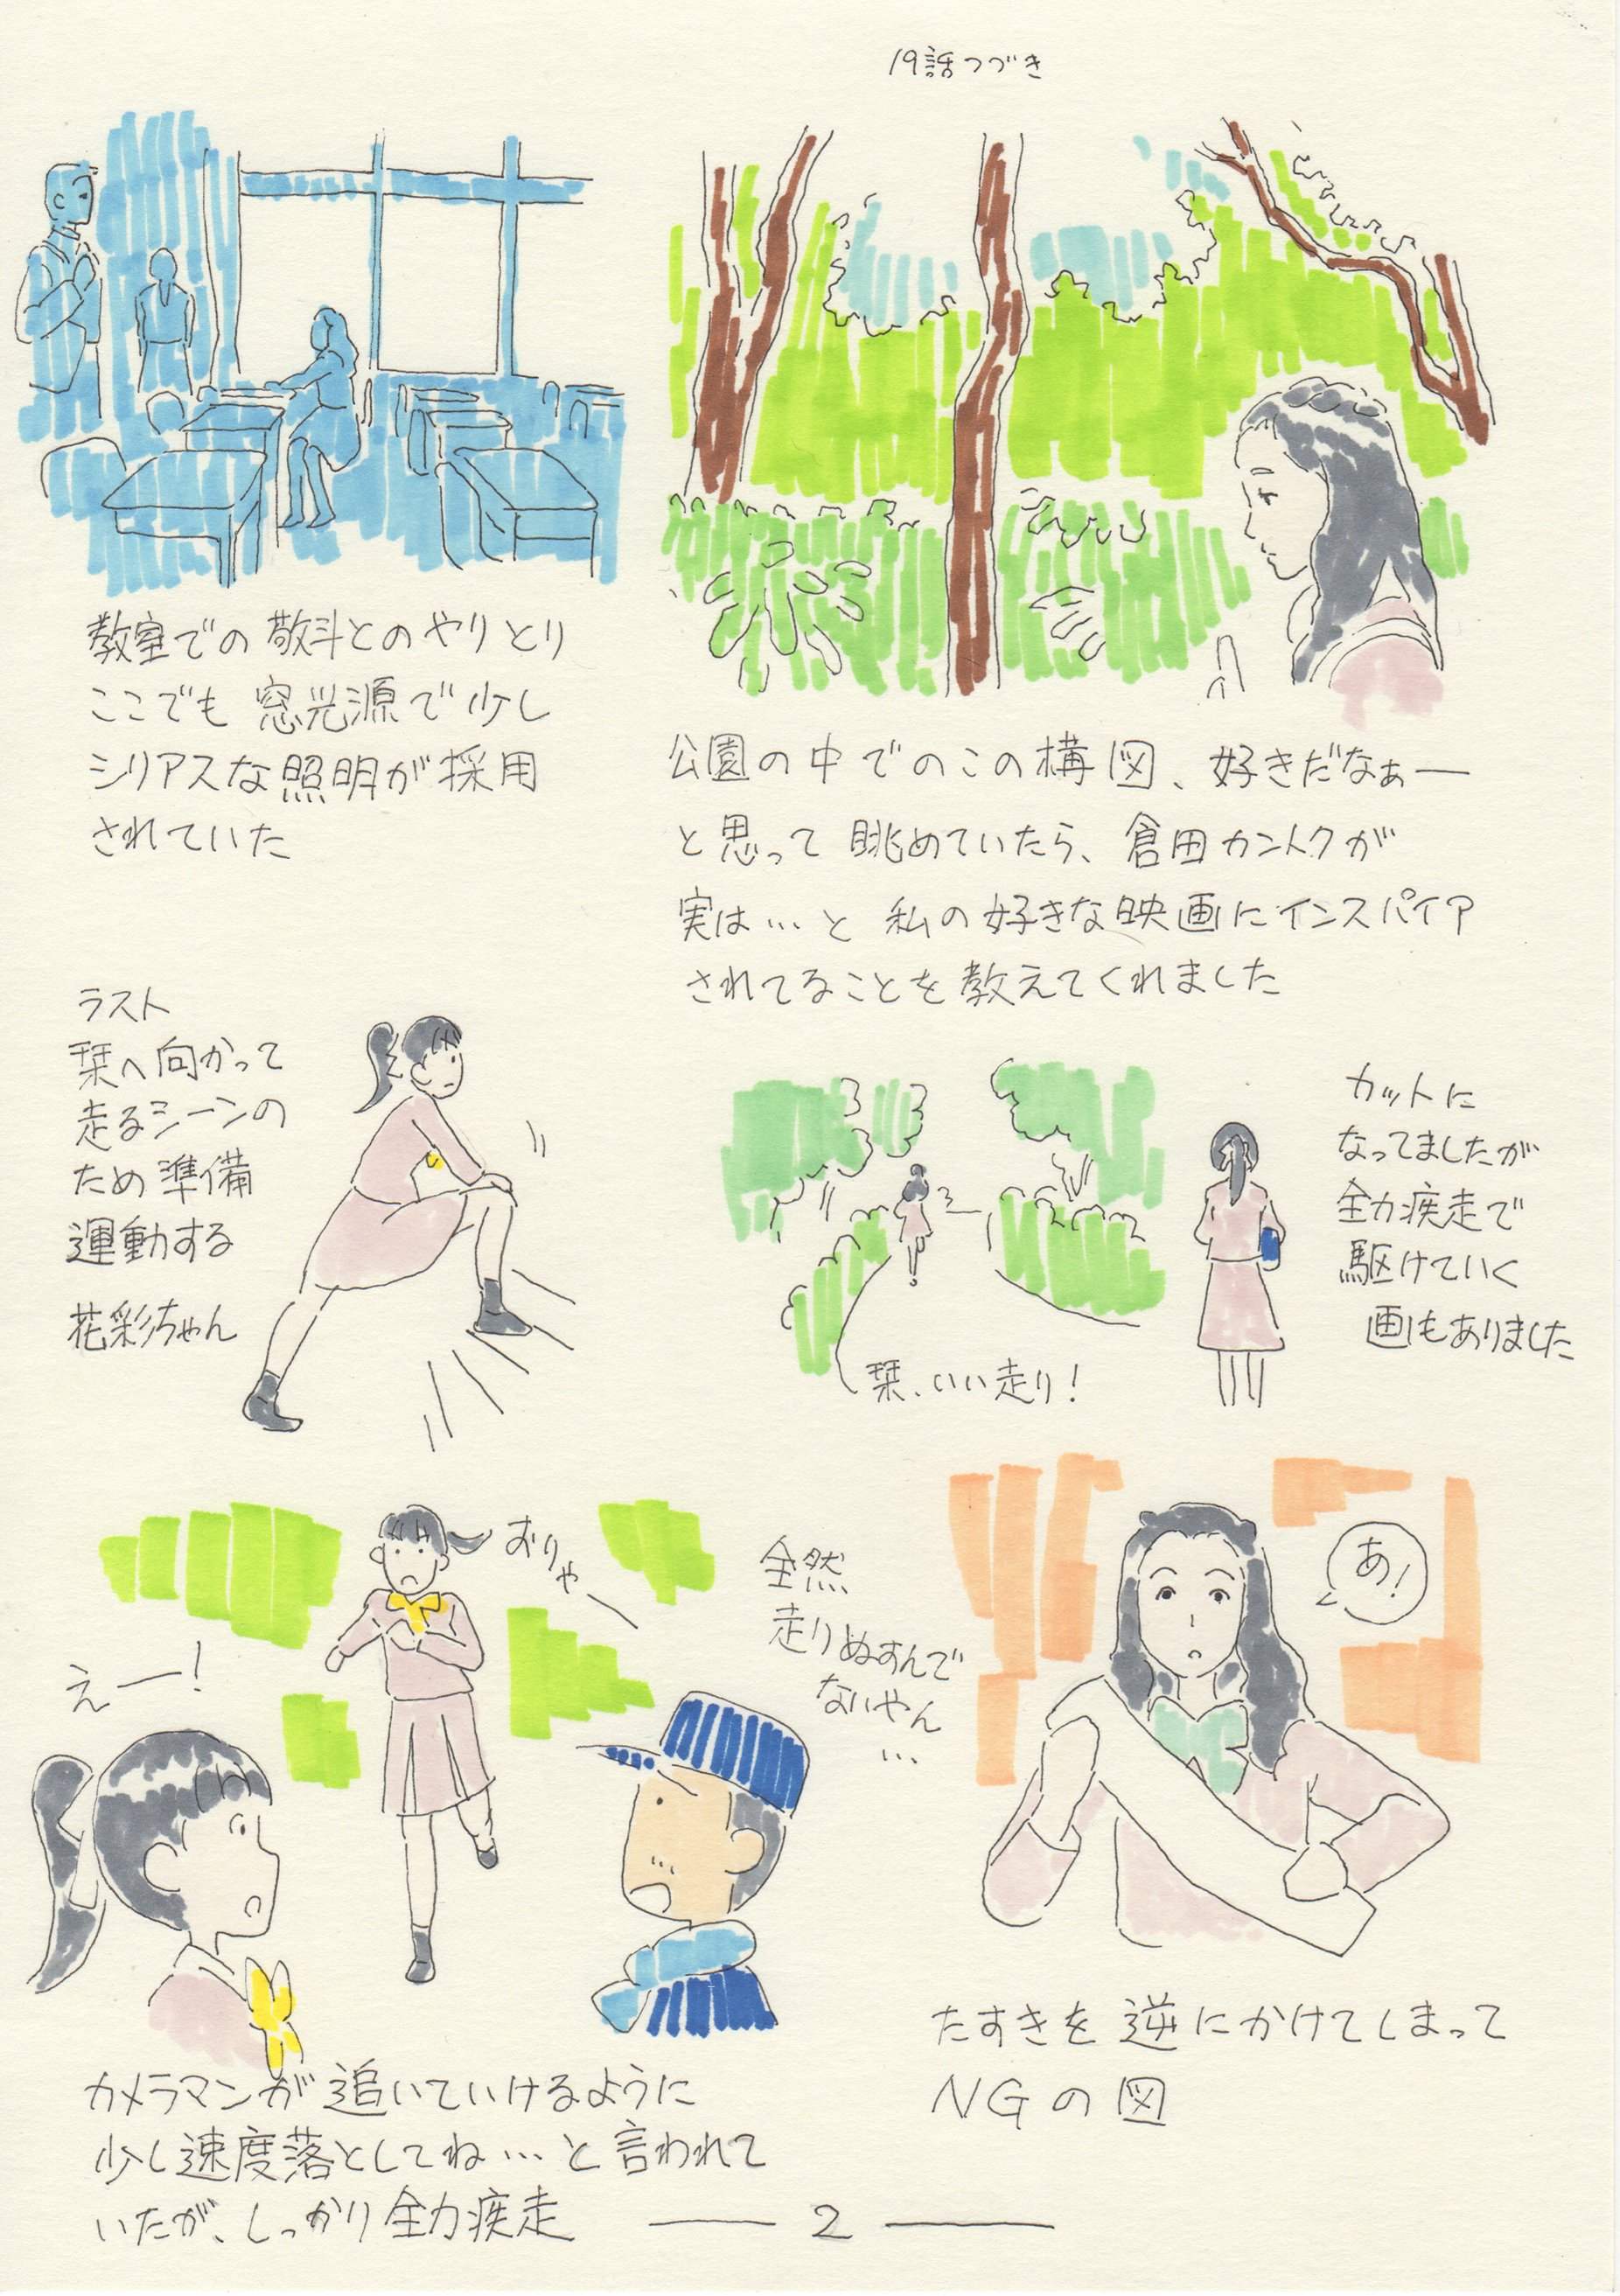 19話つづき
教室での敬斗とのやりとり
ここでも窓光源で少し
シリアスな照明が採用
されていた
公園の中でのこの構図、好きだなぁー
と思って眺めていたら、倉田カントクが
実は…と私の好きな映画にインスパイア
されてることを教えてくれました
ラスト
栞へ向かって
走るシーンの
ため準備
運動する
花彩ちゃん
カットに
なってましたが
全力疾走で
駆けていく
画もありました
栞、いい走り！
えー！
おりゃー
全然
走りぬすんで
ないやん
…
カメラマンが追いていけるように
少し速度落としてね…と言われて
いたが、しっかり全力疾走
あ！
たすきを逆にかけてしまって
NGの図
2